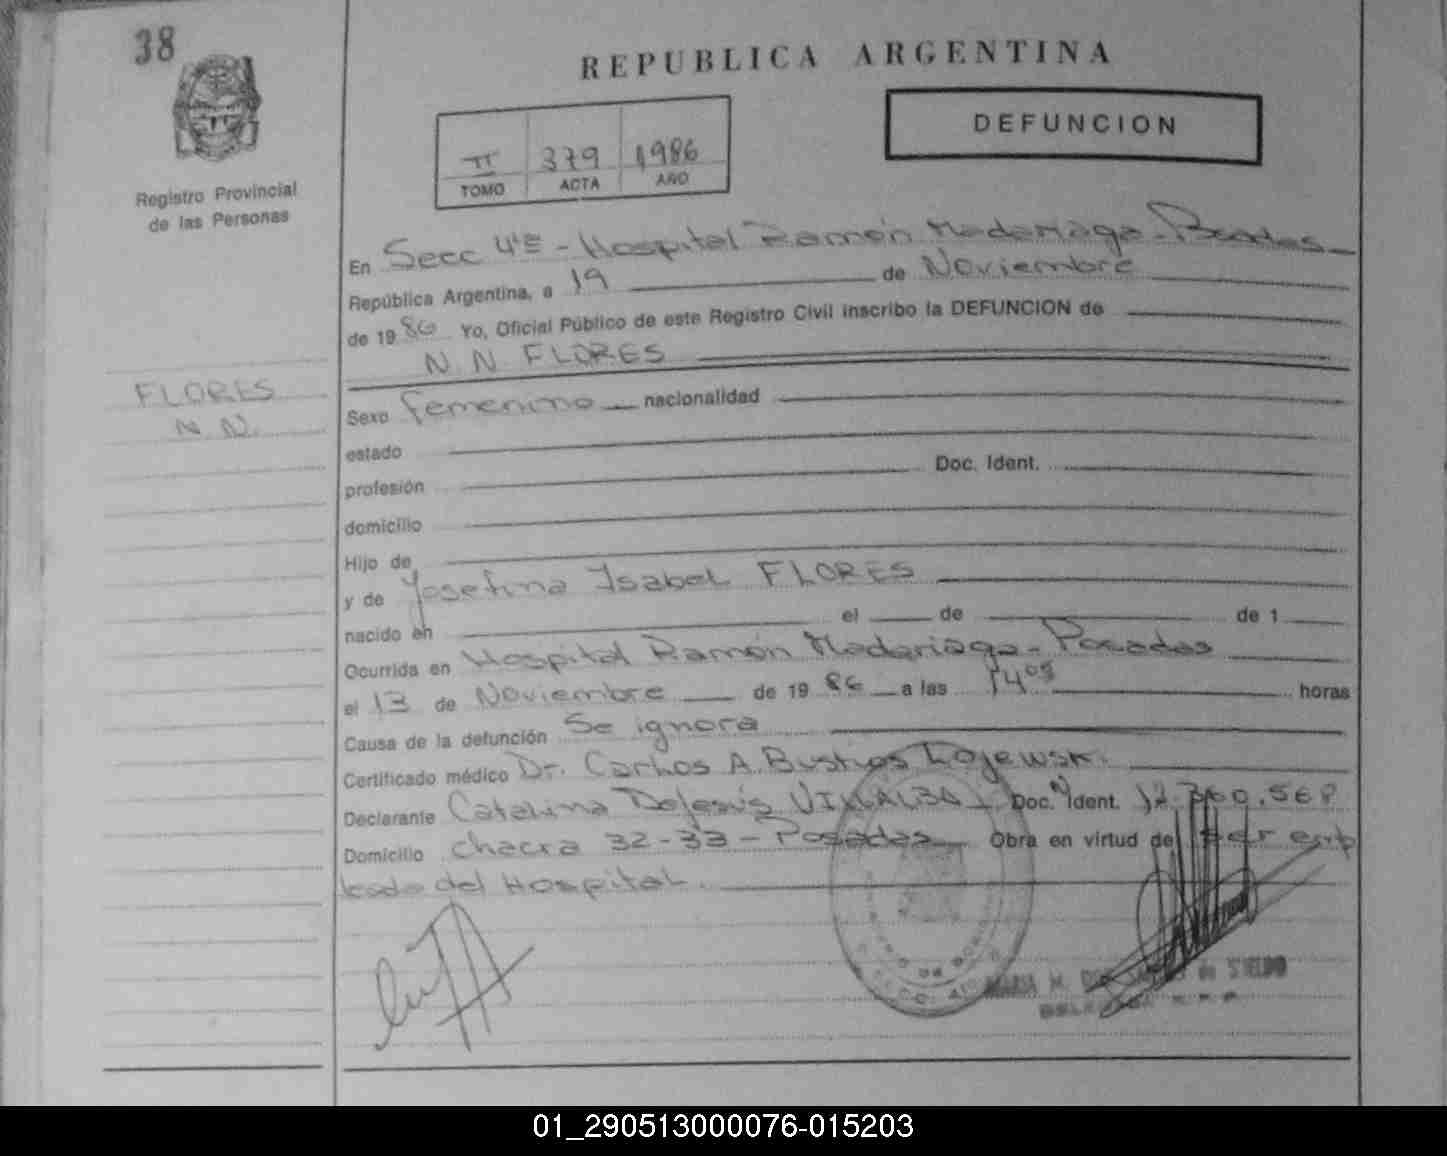 38
REPUBLICA ARGENTINA
DEFUNCION
II 379 1986
TOMO ACTA AÑO
Registro Provincial
de las Personas
En Secc 4ta - Hospital Ramón Madariaga - Posadas
República Argentina, a 19 de Noviembre
de 1986 Yo, Oficial Público de este Registro Civil inscribo la DEFUNCION de
N. N. FLORES
FLORES
N. N.
Sexo femenino nacionalidad
estado
profesión Doc. Ident.
domicilio
Hijo de
y de Josefina Isabel FLORES
nacido en el de de 1
Ocurrida en Hospital Ramón Madariaga - Posadas
el 13 de Noviembre de 1986 a las 14 05 horas
Causa de la defunción Se ignora
Certificado médico Dr. Carlos A. Bustios
Declarante Catalina DeJesús VILLALBA Doc. Ident.
Domicilio chacra 32-33 - Posadas Obra en virtud de ser emp
leado del Hospital.
MARIA M.